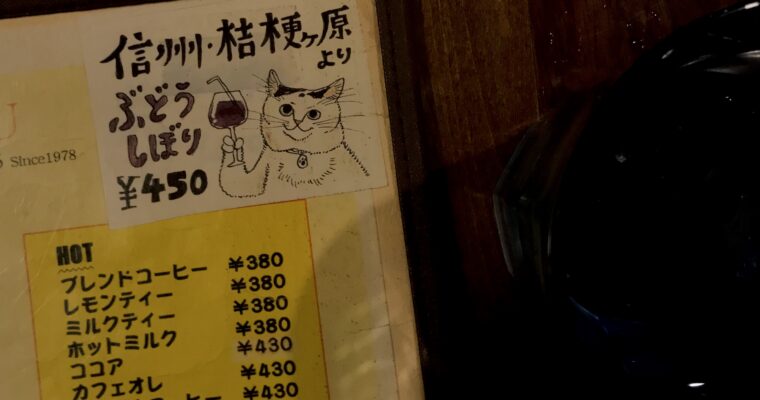 信州・桔梗ヶ原
より
ぶどう
しぼり
¥450
Since1978
HOT
ブレンドコーヒー ¥380
レモンティー ¥380
ミルクティー ¥380
ホットミルク ¥430
ココア ¥430
カフェオレ ¥430